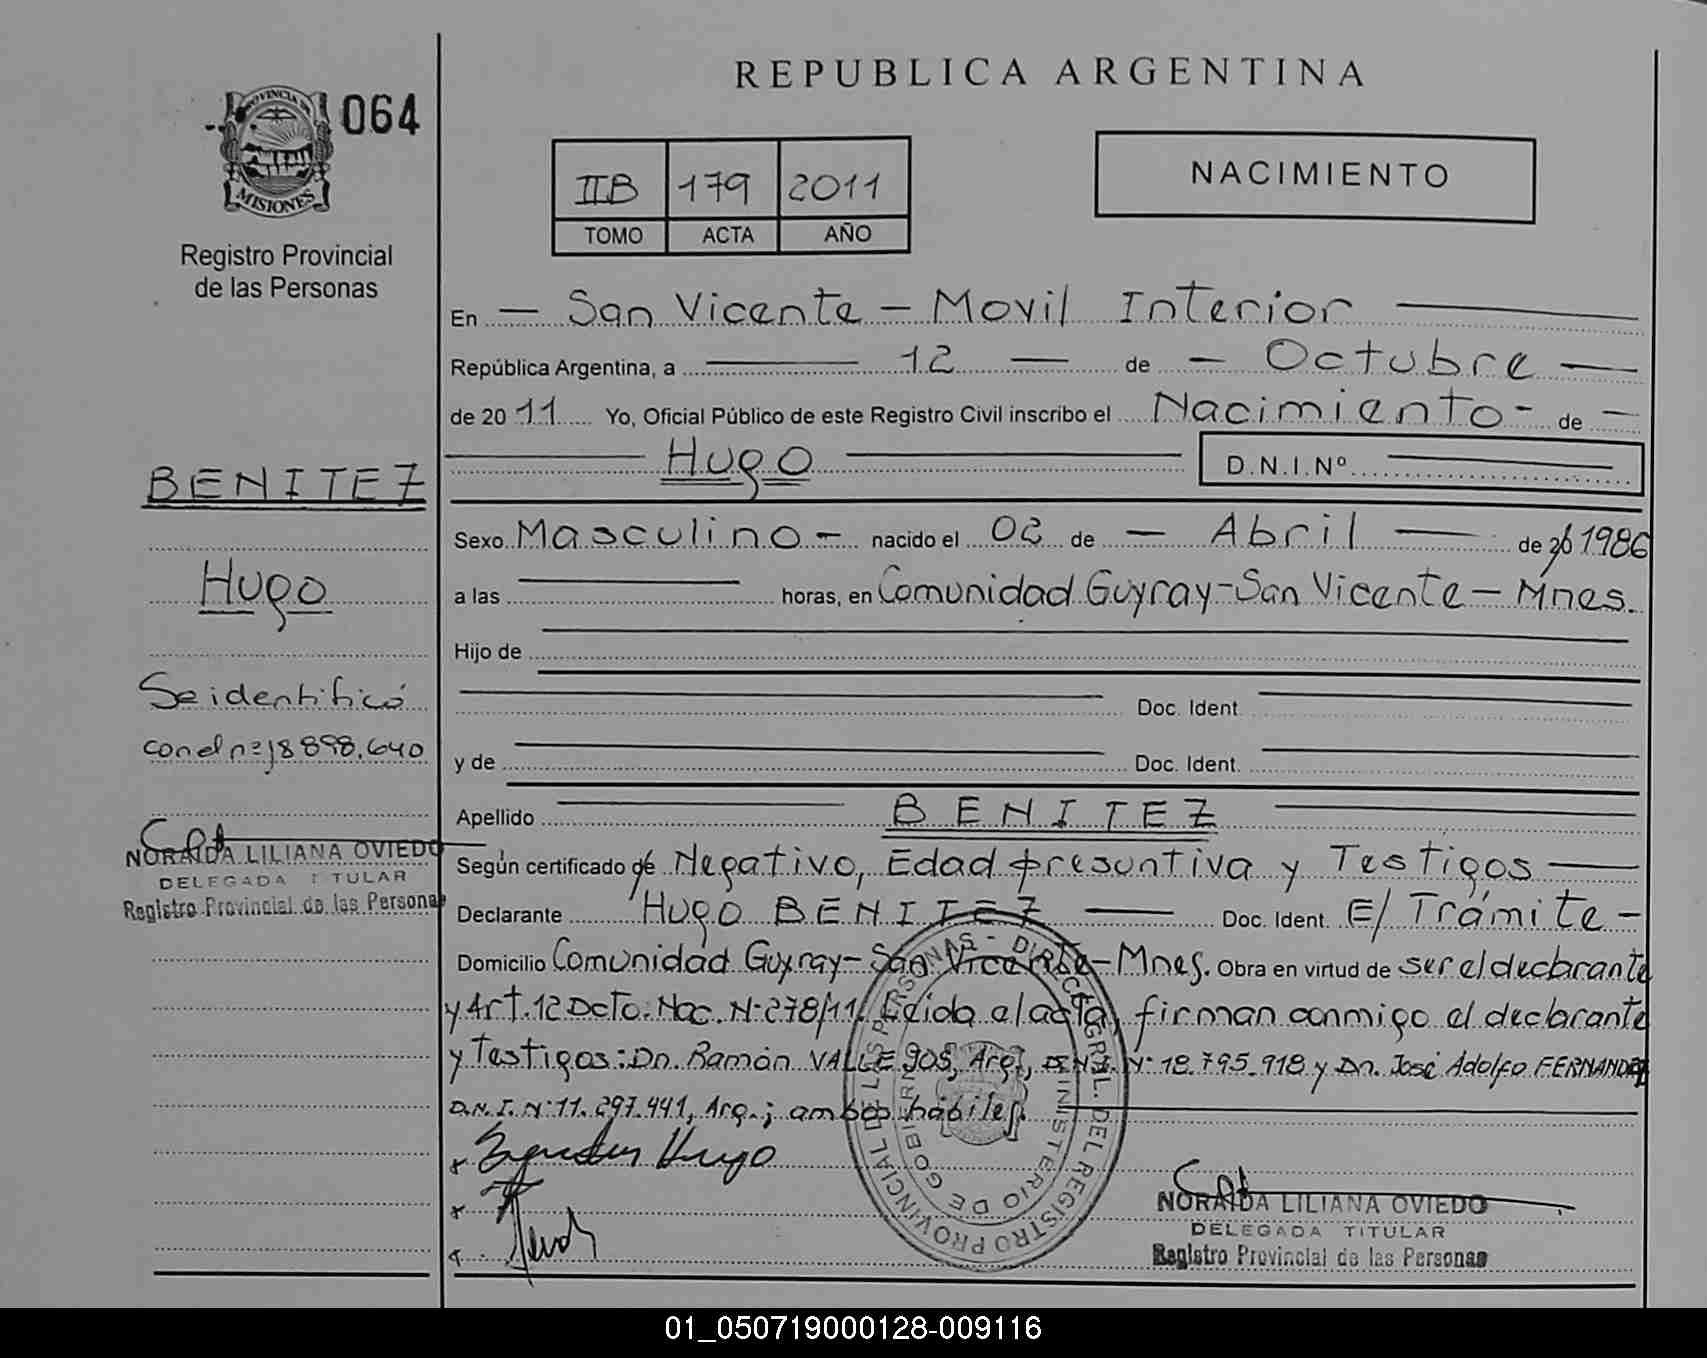 REPUBLICA ARGENTINA
PROVINCIA DE
MISIONES
064
Registro Provincial
de las Personas
IIB 179 2011
TOMO ACTA AÑO
NACIMIENTO
En — San Vicente — Movil Interior —
República Argentina, a — 12 — de — Octubre —
de 20 11 Yo, Oficial Público de este Registro Civil inscribo el Nacimiento - de —
— Hugo — D.N.I.Nº —
Sexo Masculino — nacido el 02 de — Abril — de 20 1986
a las — horas, en Comunidad Guyray - San Vicente — Mnes.
Hijo de —
— Doc. Ident. —
y de — Doc. Ident. —
Apellido — BENITEZ —
Según certificado de Negativo, Edad presuntiva y Testigos —
Declarante Hugo BENITEZ — Doc. Ident. E/ Trámite —
Domicilio Comunidad Guyray - San Vicente - Mnes. Obra en virtud de ser el declarante
y Art. 12 Dcto. Nac. Nº 278/11. Leida el acta, firman conmigo el declarante
y Testigos: Dn. Ramón VALLEJOS, Arg., D.N.I. Nº 18.795.918 y Dn. José Adolfo FERNANDEZ
D.N.I. Nº 11.297.441, Arg.; ambos hábiles. —
Hugo
NORAIDA LILIANA OVIEDO
DELEGADA TITULAR
Registro Provincial de las Personas
DIREC. GRAL. DEL REGISTRO PROVINCIAL DE LAS PERSONAS -
MINISTERIO DE GOBIERNO
BENITEZ
Hugo
Se identificó
con el nº 18 898.640
NORAIDA LILIANA OVIEDO
DELEGADA TITULAR
Registro Provincial de las Personas
01_050719000128-009116